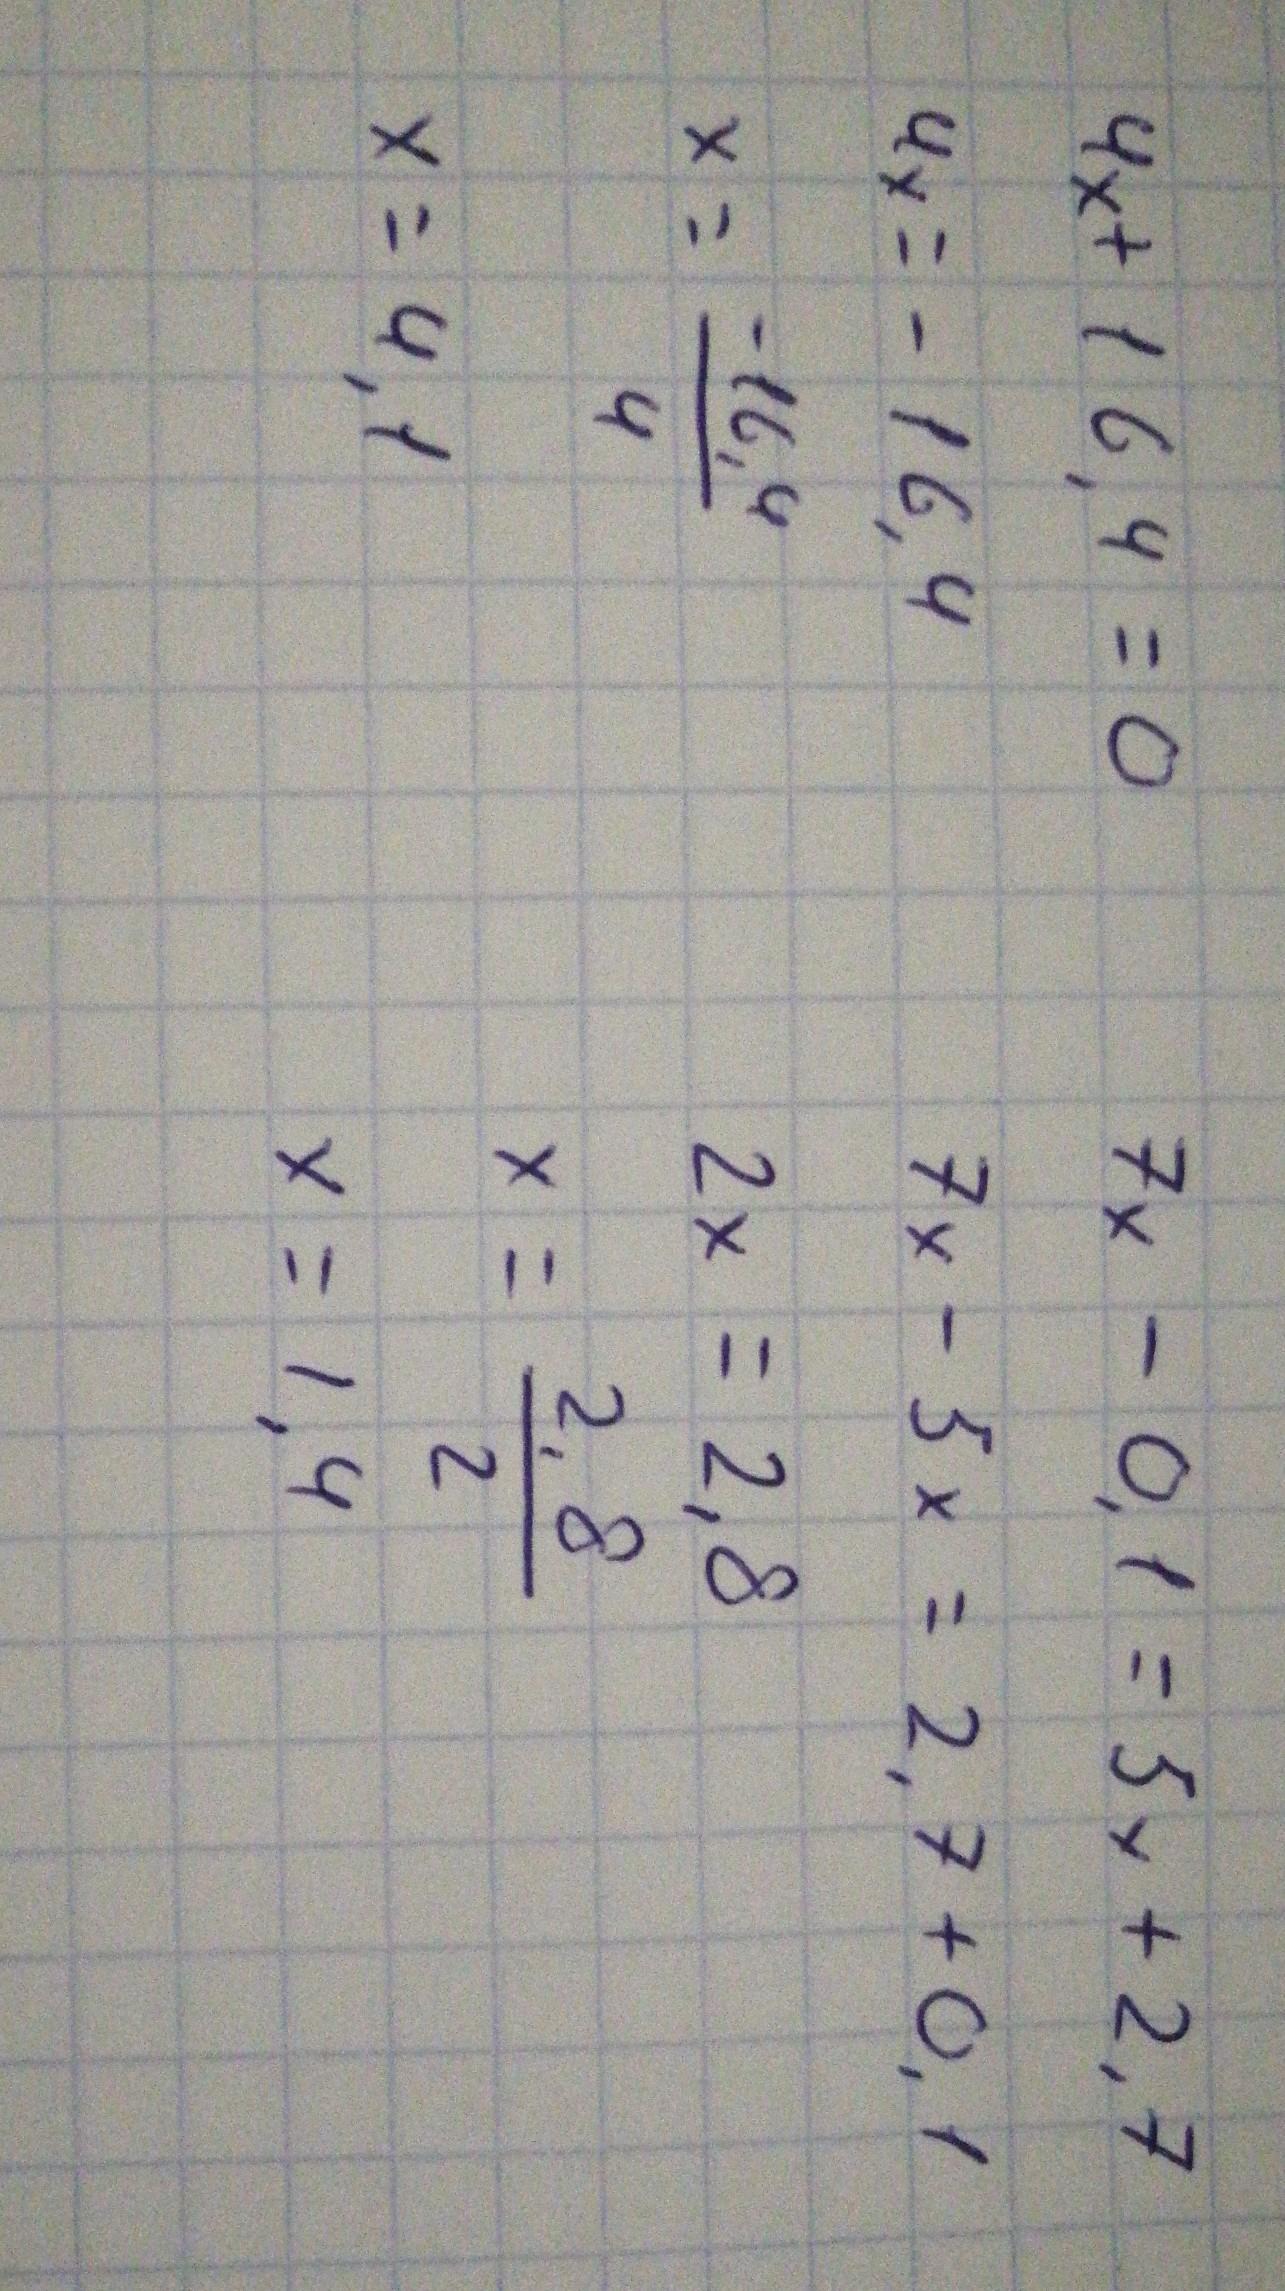 4x+16,4=0
4x=-16,4
x=-16,4/4
x=4,1
7x-0,1=5x+2,7
7x-5x=2,7+0,1
2x=2,8
x=2,8/2
x=1,4